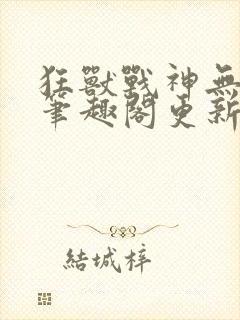 狂獸戰神無
筆趣閣更新
結城梓